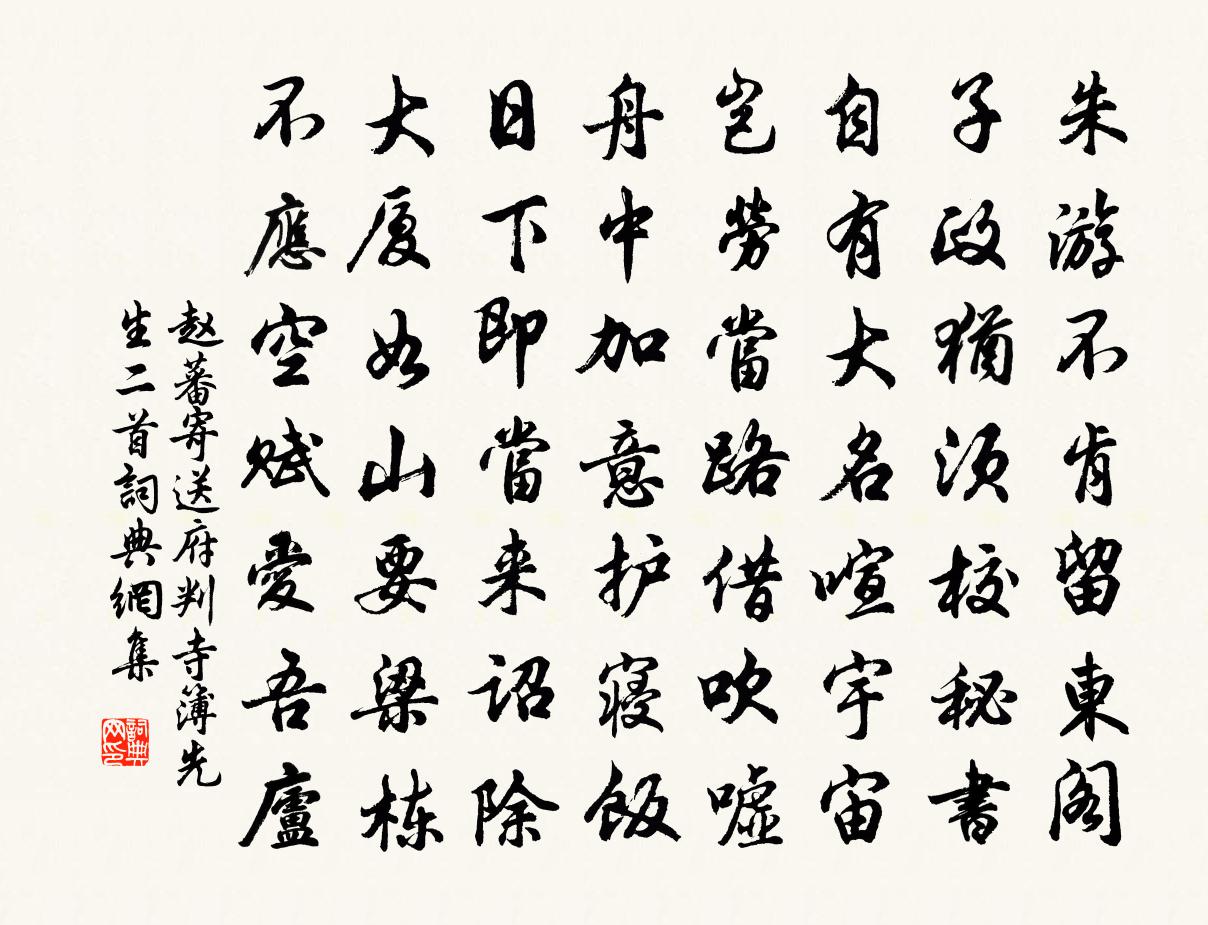 朱游不肯留東阁
子政猶须校秘書
自有大名喧宇宙
岂勞當路借吹嘘
舟中加意护寝飯
日下即當来诏除
大厦如山要梁栋
不應空赋愛吾廬
赵蕃寄送府判寺簿先
生二首詞典網集
詞典网印